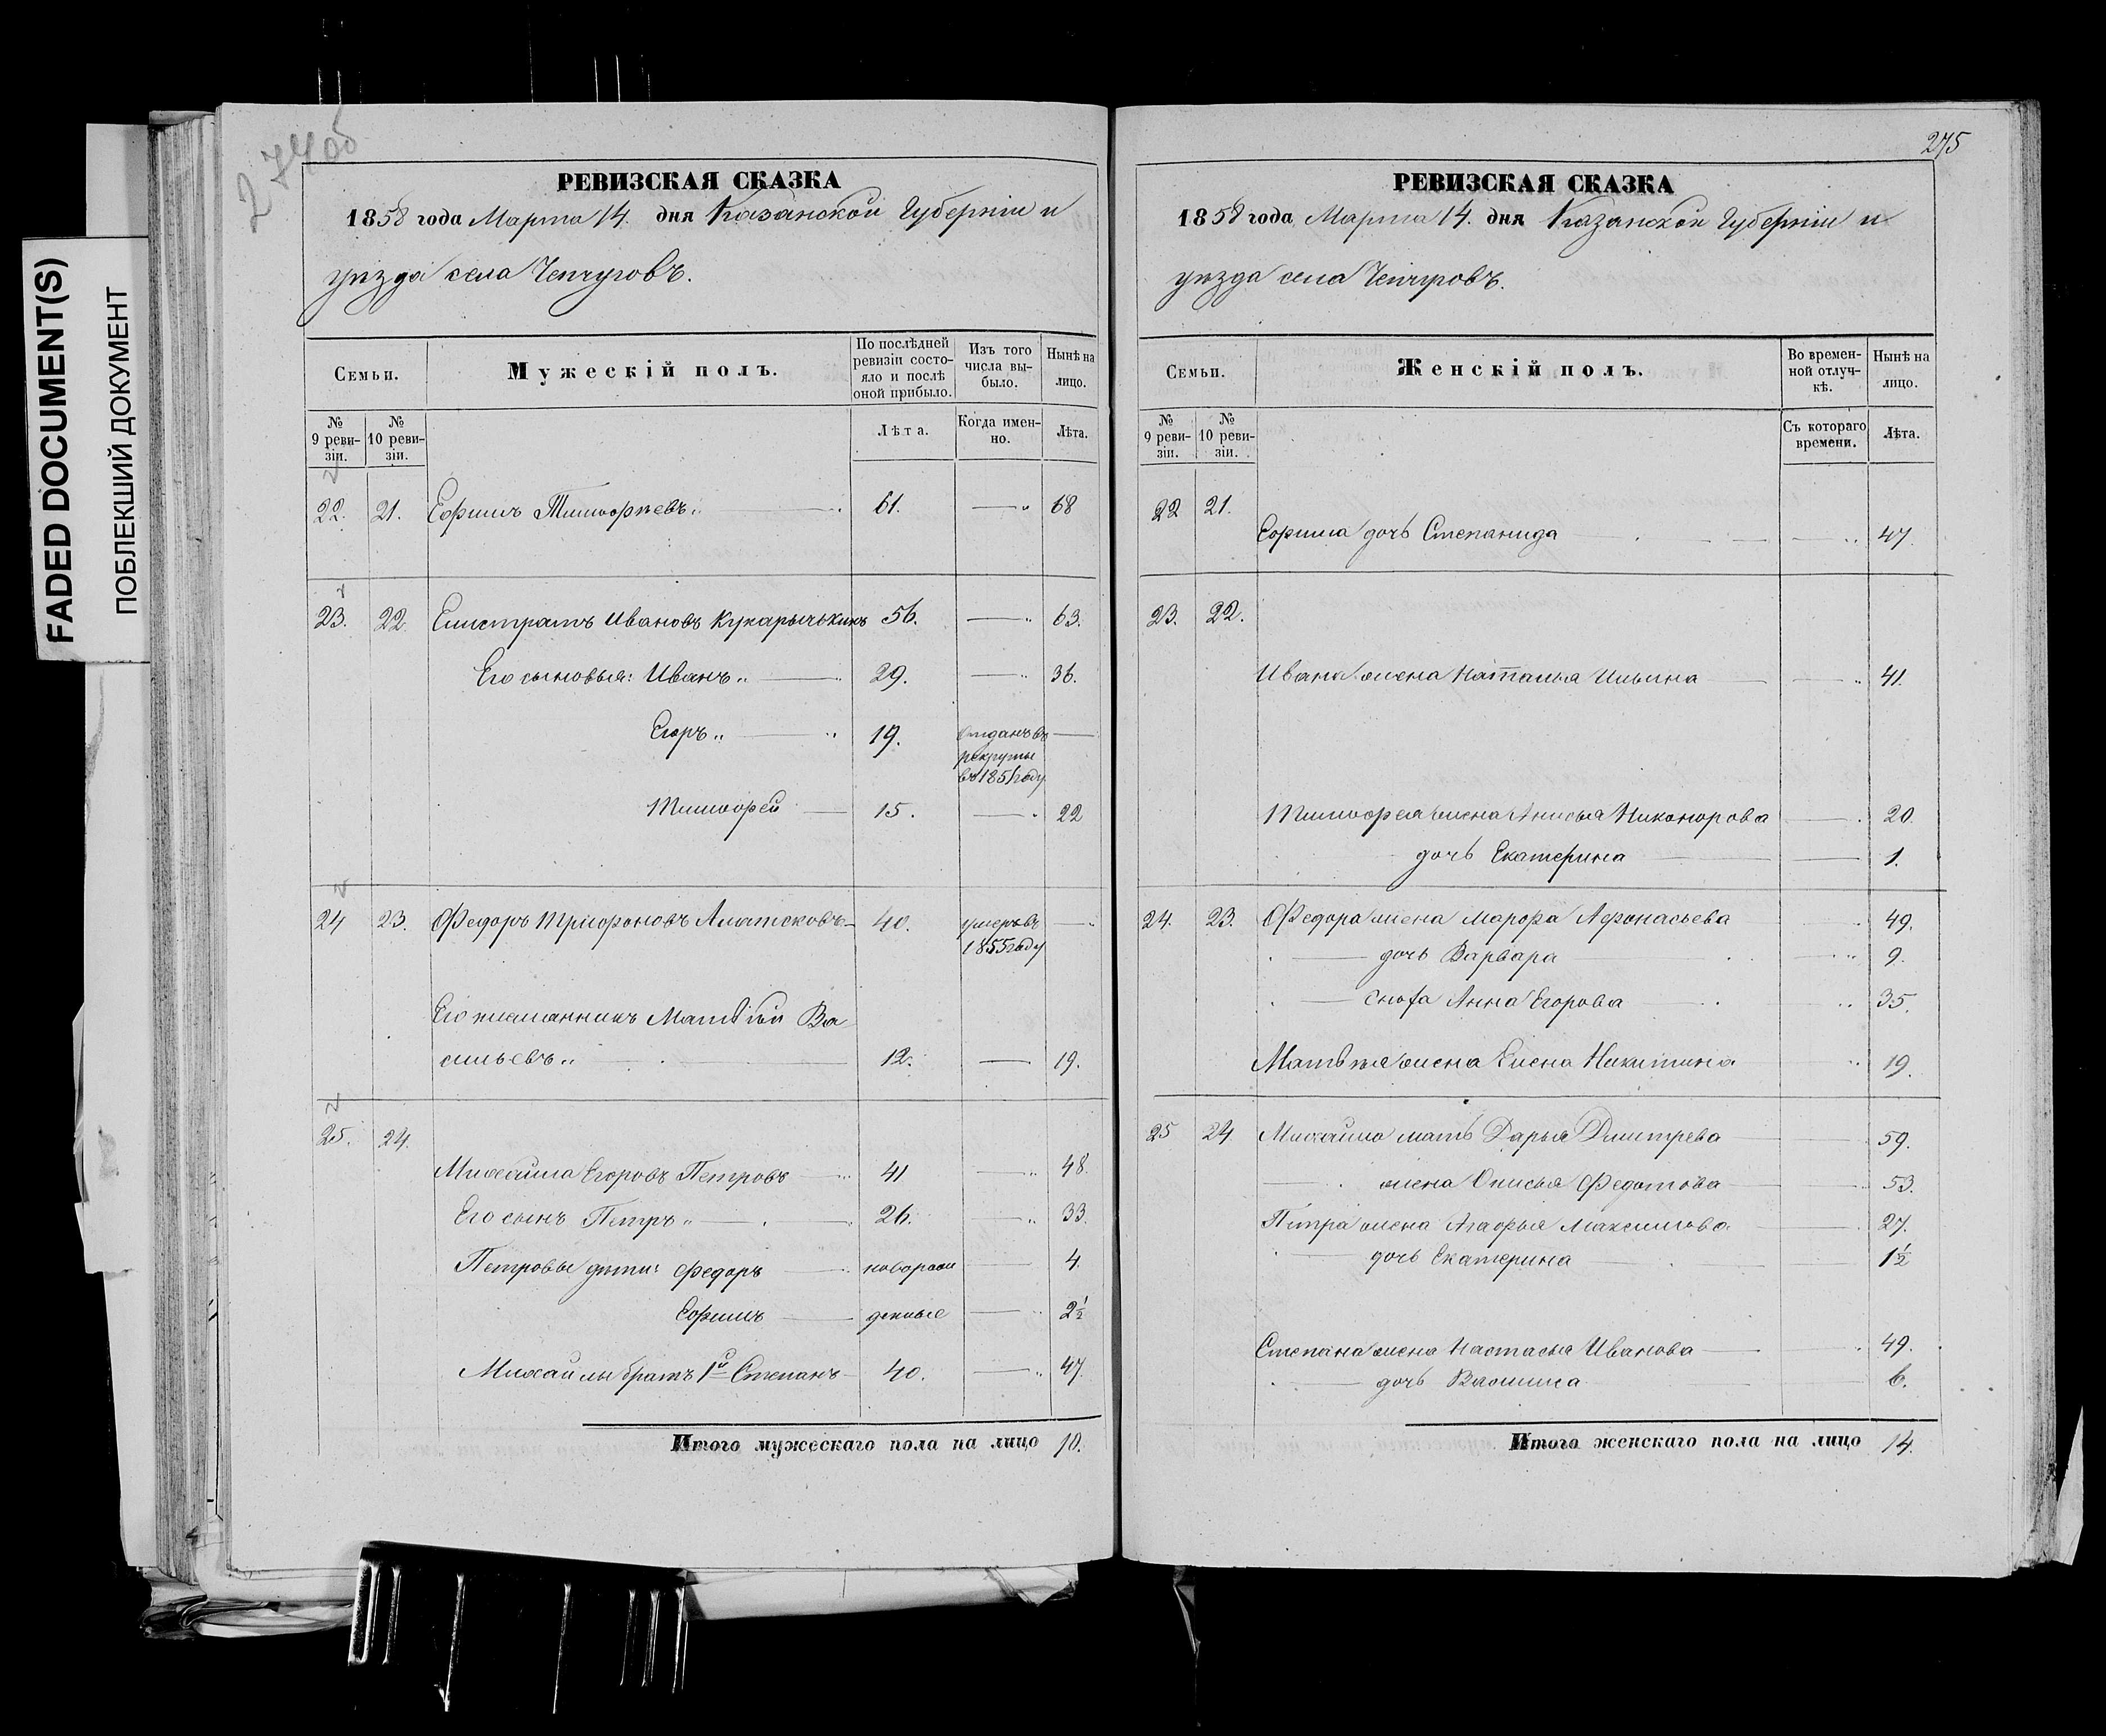 FADED DOCUMENT(S)
ПОБЛЕКШИЙ ДОКУМЕНТ
274об
РЕВИЗСКАЯ СКАЗКА
1858 года Марта 14. дня Казанской Губерніи и
уѣзда села Чепчуговъ.
Семьи.
Мужескій полъ.
По послѣдней ревизіи состояло и послѣ оной прибыло.
Изъ того числа выбыло.
Нынѣ на лицо.
№ 9 ревизіи.
№ 10 ревизіи.
Лѣта.
Когда именно.
Лѣта.
22. 21. Ефимъ Тимофѣевъ „ 61. — 68
23. 22. Елистратъ Ивановъ Кукарычькинъ 56. — 63.
Его сыновья: Иванъ „ — 29. — 36.
Егоръ „ — 19. отданъ въ —
рекруты
въ 1851 году
Тимофей — 15. — 22
24 23. Федоръ Трифоновъ Алатсковъ — 40. умеръ въ —
1855 году
Его племянникъ Матвѣй Ва
сильевъ „ — 12. — 19.
25. 24.
Михайла Егоровъ Петровъ — 41 — 48.
Его сынъ Петръ „ — 26. — 33.
Петровы дѣти: Федоръ — новорож — 4.
Ефимъ — денные — 2½
Михайлы братъ 1й Степанъ — 40. — 47.
Итого мужескаго пола на лицо 10.
275
РЕВИЗСКАЯ СКАЗКА
1858 года Марта 14. дня Казанской Губерніи и
уѣзда села Чепчуговъ.
Семьи.
Женскій полъ.
Во временной отлучкѣ.
Нынѣ на лицо.
№ 9 ревизіи.
№ 10 ревизіи.
Съ котораго времени.
Лѣта.
22 21.
Ефима дочь Степанида — 47.
23. 22.
Ивана жена Наталья Ильина — 41.
Тимофея жена Анисья Никонорова — 20.
дочь Екатерина — 1.
24. 23. Федора жена Марфа Афонасьева — 49.
— дочь Варвара — 9.
— сноха Анна Егорова — 35.
Матвѣя жена Елена Никитина 19.
25 24. Михайло мать Дарья Дмитрева — 59.
— жена Онисья Федотова — 53.
Петра жена Агафья Максимова — 27.
— дочь Екатерина — 1½
Степана жена Настасья Иванова — 49.
— дочь — 6.
Итого женскаго пола на лицо 14.